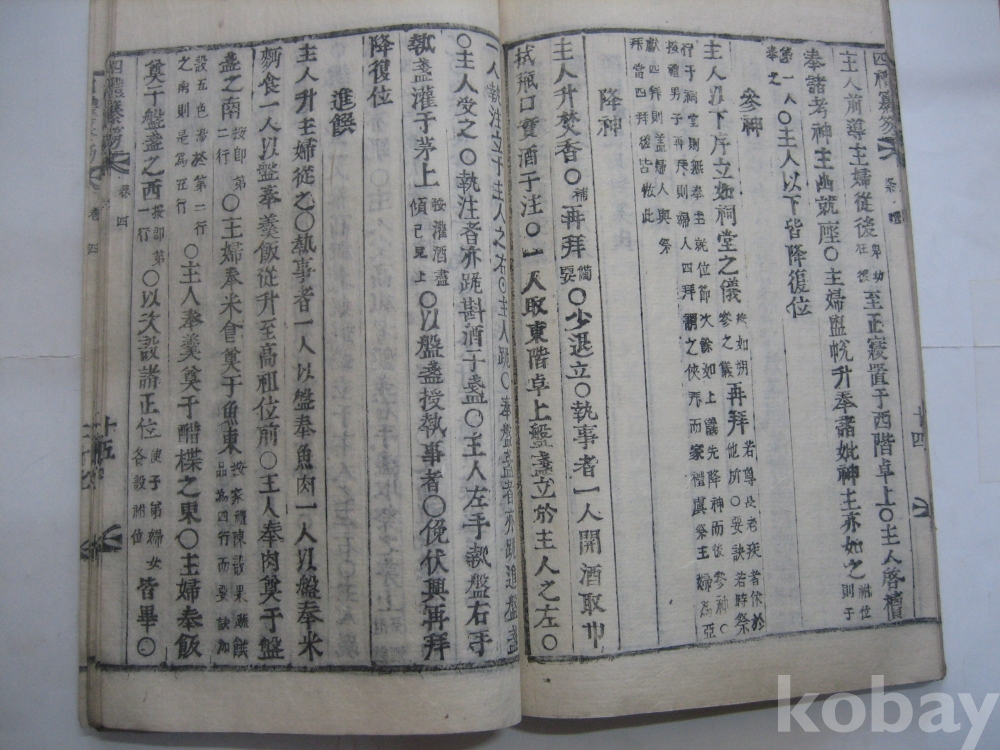 主人前導主婦從後卑幼在後至正寢置于西階卓上○主人啓櫝
奉諸考神主出就座○主婦盥帨升奉諸妣神主亦如之祔位則子
弟一人奉之○主人以下皆降復位
參神
主人以下序立如祠堂之儀按如朔參之儀再拜若尊長老疾者休於他所○要訣若時祭
行于祠堂則無奉主就位節次餘如上儀先降神而後參神○
按禮男子再拜則婦人四拜謂之俠拜而家禮虞祭主婦爲亞
獻四拜則盖婦人與祭拜當四拜後皆攷此
降神
主人升焚香○補再拜備要○少退立○執事者一人開酒取巾
拭瓶口實酒于注○一人取東階卓上盤盞立於主人之左○
一人執注立于主人之右○主人跪○奉盤盞者亦跪進盤盞
○主人受之○執注者亦跪斟酒于盞○主人左手執盤右手
執盞灌于茅上按灌酒盡傾已見上○以盤盞授執事者○俛伏興再拜
降復位
進饌
主人升主婦從之○執事者一人以盤奉魚肉一人以盤奉米
麪食一人以盤奉羹飯從升至高祖位前○主人奉肉奠于盤
盞之南按卽第二行○主婦奉米食奠于魚東按家禮陳設果蔬饌品爲四行而要訣加
設五色湯於第二行之南則是爲五行○主人奉羹奠于醋楪之東○主婦奉飯
奠于盤盞之西按卽第一行○以次設諸正位使子弟婦女各設祔位皆畢○
四禮纂笏
祭禮
十四
四禮纂笏
卷四
十五
kobay